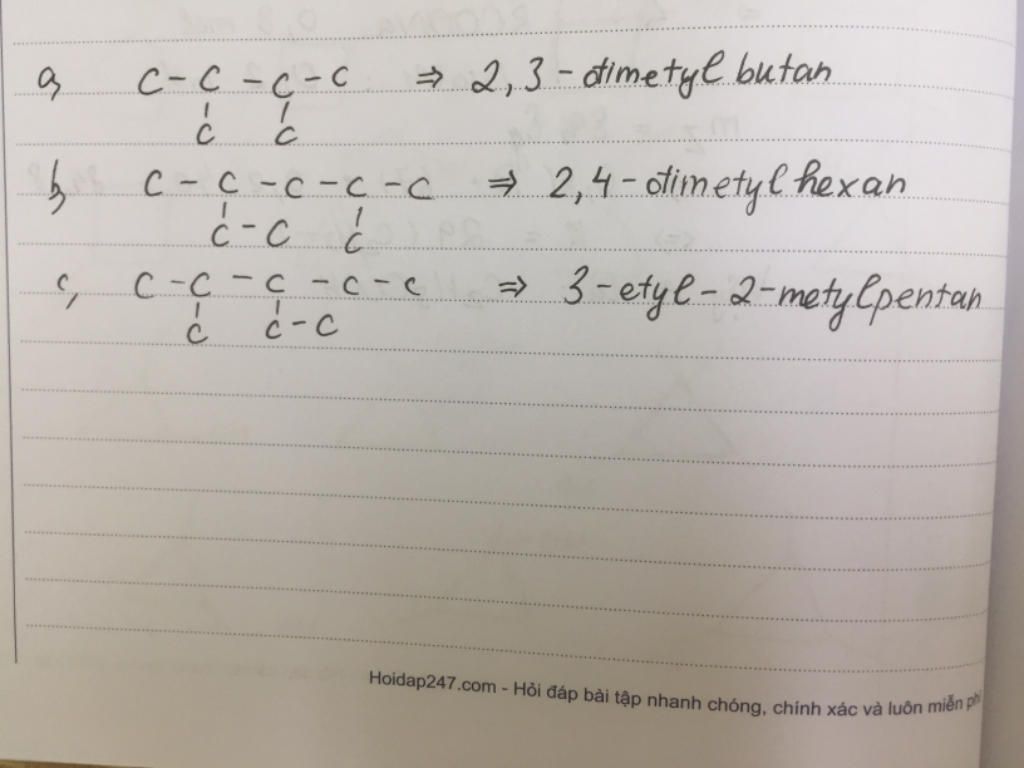 a, C - C - C - C ⇒ 2,3 - đimetyl butan
C C
b, C - C - C - C - C ⇒ 2,4 - đimetyl hexan
C - C C
c, C - C - C - C - C ⇒ 3 - etyl - 2 - metylpentan
C C - C
Hoidap247.com - Hỏi đáp bài tập nhanh chóng, chính xác và luôn miễn